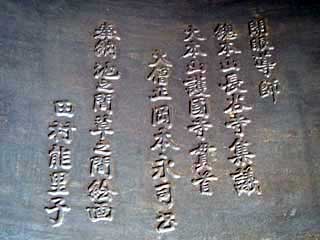 開眼導師
総本山長谷寺集議
大本山護國寺貫首
大僧正岡本永司
奉納池之間草之間絵画
田村能里子